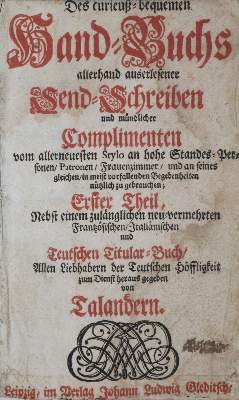 Des curieuß-bequemen
Hand-Buchs
allerhand auserlesener
Send-Schreiben
und mündlicher
Complimenten
vom allerneuesten Stylo an hohe Standes-Per-
sonen/Patronen/Frauenzimmer/und an seines
gleichen/in meist vorfallenden Begebenheiten
nützlich zu gebrauchen;
Erster Theil,
Nebst einem zulänglichen neu-vermehrten
Frantzösischen/Italiänischen
und
Teutschen Titular-Buch/
Allen Liebhabern der Teutschen Höffligkeit
zum Dienst heraus gegeben
von
Talandern.
Leipzig, im Verlag Johann Ludwig Gleditsch/